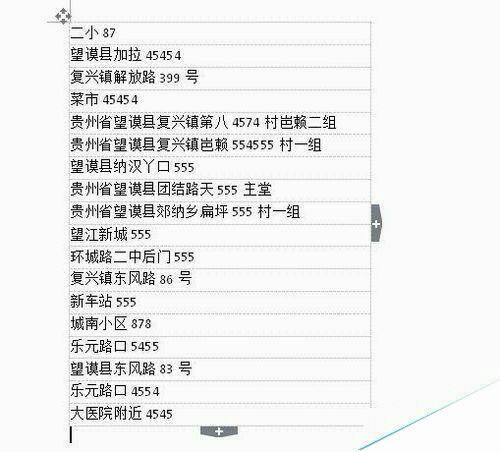 二小 87
望谟县加拉 45454
复兴镇解放路 399 号
菜市 45454
贵州省望谟县复兴镇第八 4574 村岜赖二组
贵州省望谟县复兴镇岜赖 554555 村一组
望谟县纳汉丫口 555
贵州省望谟县团结路天 555 主堂
贵州省望谟县郊纳乡扁坪 555 村一组
望江新城 555
环城路二中后门 555
复兴镇东风路 86 号
新车站 555
城南小区 878
乐元路口 5455
望谟县东风路 83 号
乐元路口 4554
大医院附近 4545